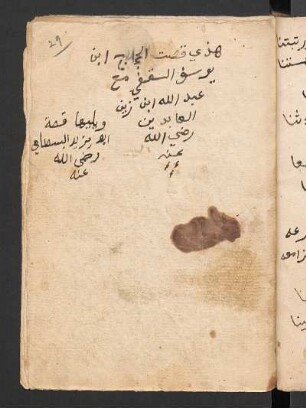 29
هذي قصت الحجاج ابن
يوسف الثقفي مع
عبد الله ابن زين
العابدين
رضي الله
عنه
ويليها قصة
ابو يزيد البسطامي
رضي الله
عنه